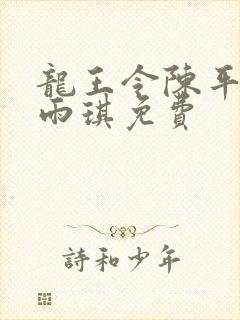 龍王令陳平
雨琪免費
詩和少年